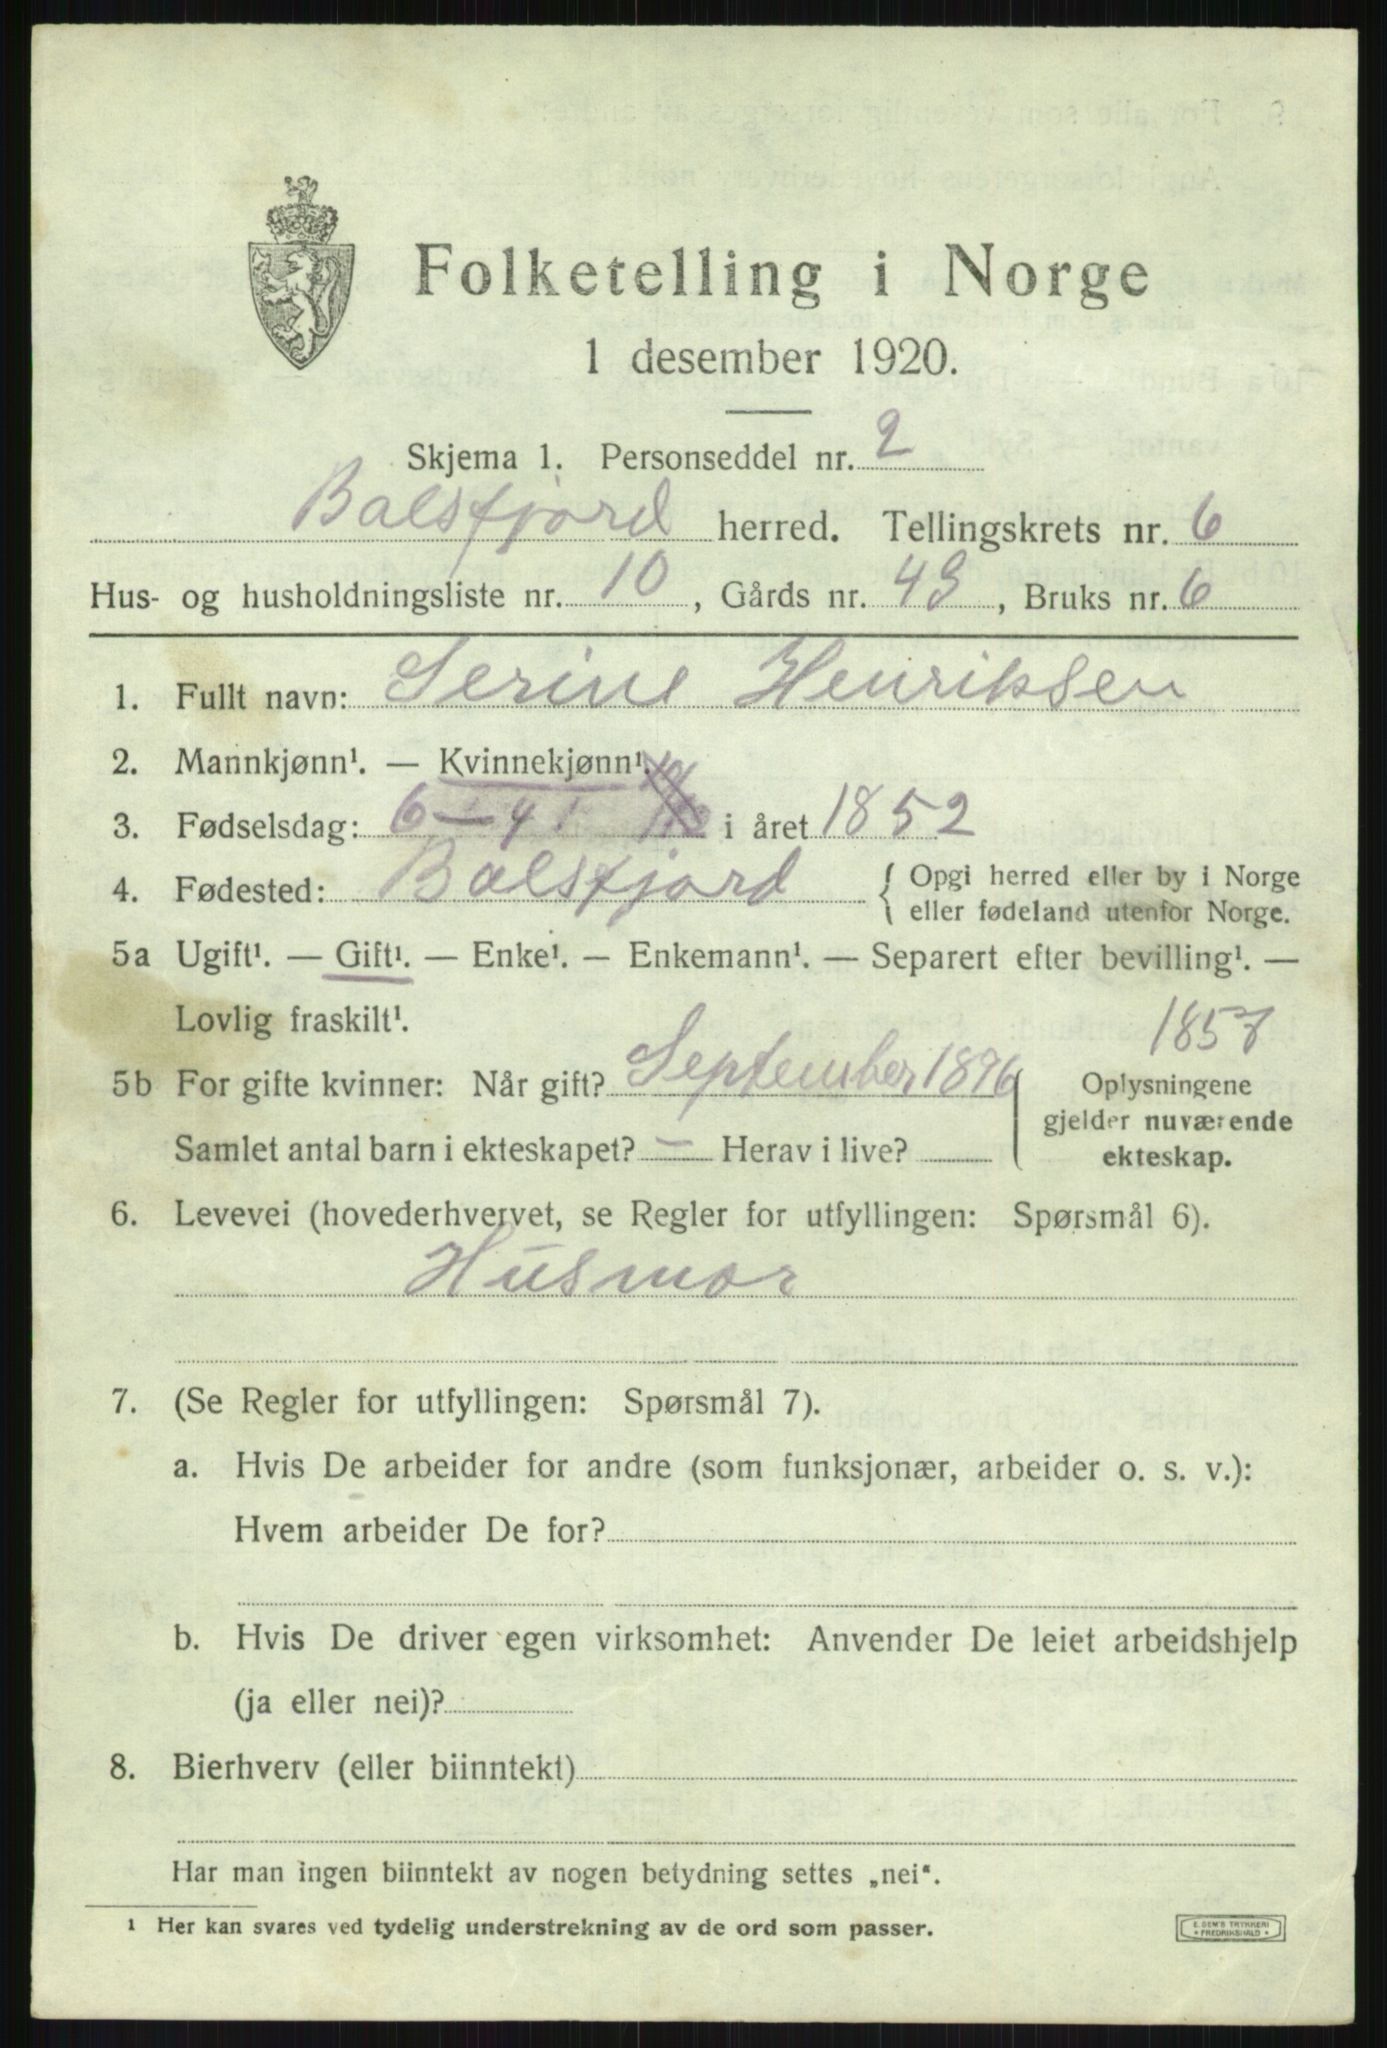 Folketelling i Norge
1 desember 1920.
Skjema 1. Personseddel nr. 2
Balsfjord herred. Tellingskrets nr. 6
Hus- og husholdningsliste nr. 10, Gårds nr. 49, Bruks nr. 6
1. Fullt navn: Serine Henriksen
2. Mannkjønn¹. — Kvinnekjønn¹.
3. Fødselsdag: 6 — 4 i året 1852
4. Fødested: Balsfjord { Opgi herred eller by i Norge
eller fødeland utenfor Norge.
5a Ugift¹. — Gift¹. — Enke¹. — Enkemann¹. — Separert efter bevilling¹. —
Lovlig fraskilt¹. 1857
5b For gifte kvinner: Når gift? September 1896 Oplysningene
gjelder nuværende
Samlet antal barn i ekteskapet? — Herav i live? ekteskap.
6. Levevei (hovederhvervet, se Regler for utfyllingen: Spørsmål 6).
Husmor
7. (Se Regler for utfyllingen: Spørsmål 7).
a. Hvis De arbeider for andre (som funksjonær, arbeider o. s. v.):
Hvem arbeider De for?
b. Hvis De driver egen virksomhet: Anvender De leiet arbeidshjelp
(ja eller nei)?
8. Bierhverv (eller biinntekt)
Har man ingen biinntekt av nogen betydning settes „nei“.
¹ Her kan svares ved tydelig understrekning av de ord som passer.
E. SEM'S TRYKKERI
• FREDRIKSHALD •